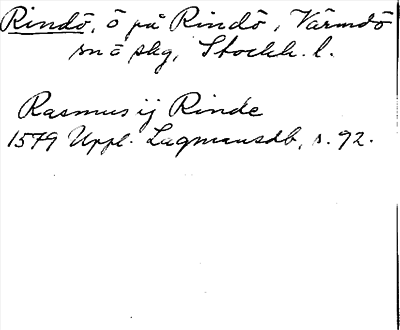 Rindö, ö på Rindö, Värmdö
snö skg, Stockh. l.
Rasmus ij Rinde
1579 Uppl. Lagmansdb, s. 92.